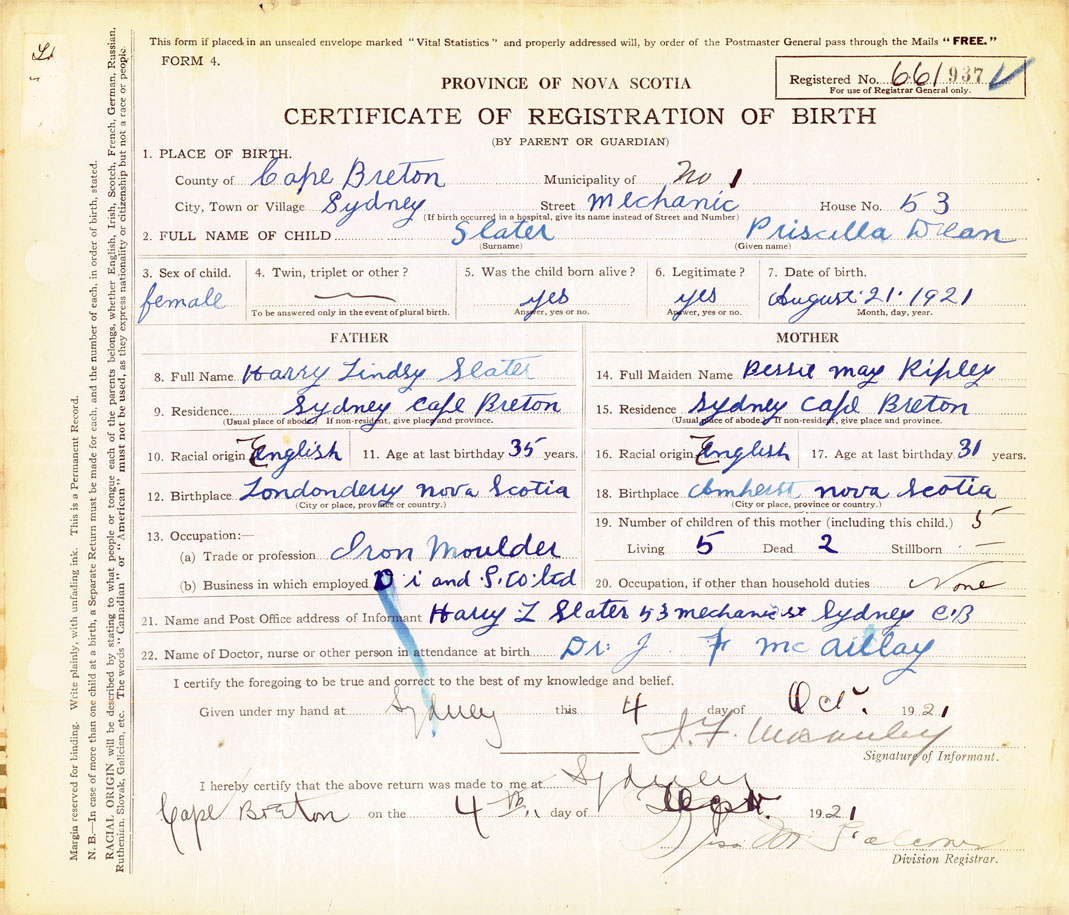 This form if placed in an unsealed envelope marked "Vital Statistics" and properly addressed will, by order of the Postmaster General pass through the Mails "FREE."
FORM 4.
Registered No. 661937
For use of Registrar General only.
PROVINCE OF NOVA SCOTIA
CERTIFICATE OF REGISTRATION OF BIRTH
(BY PARENT OR GUARDIAN)
1. PLACE OF BIRTH.
County of Cape Breton Municipality of No 1
City, Town or Village Sydney Street Mechanic House No. 53
(If birth occurred in a hospital, give its name instead of Street and Number)
2. FULL NAME OF CHILD Slater Priscilla
(Surname) (Given name)
3. Sex of child. 4. Twin, triplet or other? 5. Was the child born alive? 6. Legitimate? 7. Date of birth.
female yes yes August 21. 1921
To be answered only in the event of plural birth. Answer, yes or no. Answer, yes or no. Month, day, year.
FATHER MOTHER
8. Full Name Harry Lindsy Slater 14. Full Maiden Name Bessie May Ripley
9. Residence Sydney Cape Breton 15. Residence Sydney Cape Breton
(Usual place of abode.) If non-resident, give place and province. (Usual place of abode.) If non-resident, give place and province.
10. Racial origin English 11. Age at last birthday 35 years. 16. Racial origin English 17. Age at last birthday 31 years.
12. Birthplace Londonderry Nova Scotia 18. Birthplace Amherst Nova Scotia
(City or place, province or country.) (City or place, province or country.)
13. Occupation:— 19. Number of children of this mother (including this child.) 5
(a) Trade or profession Iron Moulder Living 5 Dead 2 Stillborn —
(b) Business in which employed D i and S. Co ltd 20. Occupation, if other than household duties None
21. Name and Post Office address of Informant Harry L Slater 53 mechanic st Sydney C.B
22. Name of Doctor, nurse or other person in attendance at birth Dr. J F
I certify the foregoing to be true and correct to the best of my knowledge and belief.
Given under my hand at Sydney this 4 day of Oct. 1921
Signature of Informant.
I hereby certify that the above return was made to me at Sydney
Cape Breton on the 4th day of 1921
Division Registrar.
Margin reserved for binding. Write plainly, with unfading ink. This is a Permanent Record.
N. B.—In case of more than one child at a birth, a Separate Return must be made for each, and the number of each, in order of birth, stated.
RACIAL ORIGIN will be described by stating to what people or tongue each of the parents belongs, whether English, Irish, Scotch, French, German, Russian,
Ruthenian, Slovak, Galician, etc. The words "Canadian" or "American" must not be used, as they express nationality or citizenship but not a race or people.